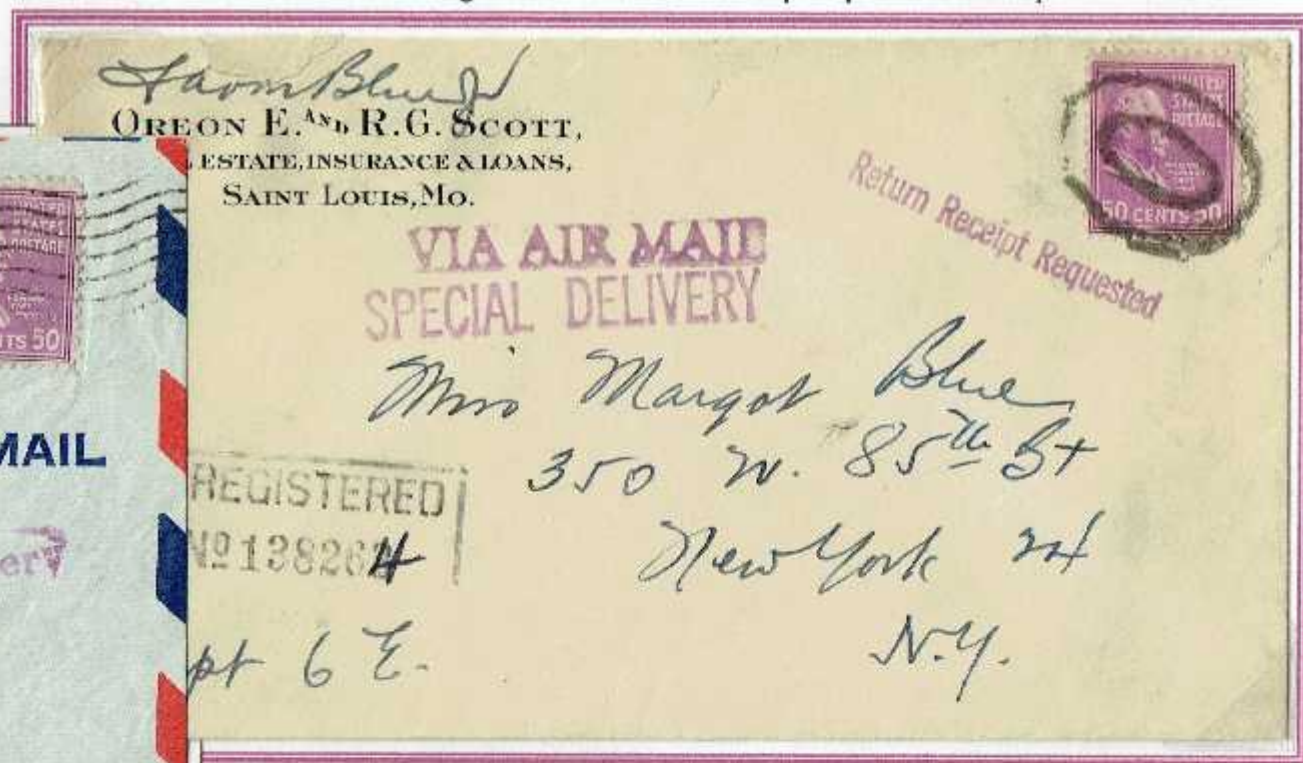 OREON E. AND R.G. SCOTT,
ESTATE, INSURANCE & LOANS,
SAINT LOUIS, MO.
STATES
POSTAGE
50 CENTS 50
Return Receipt Requested
VIA AIR MAIL
SPECIAL DELIVERY
Miss Margot Blue
350 W. 85th St
New York
N.Y.
REGISTERED
No 138264
pt 6 E.
TS 50
MAIL
ery